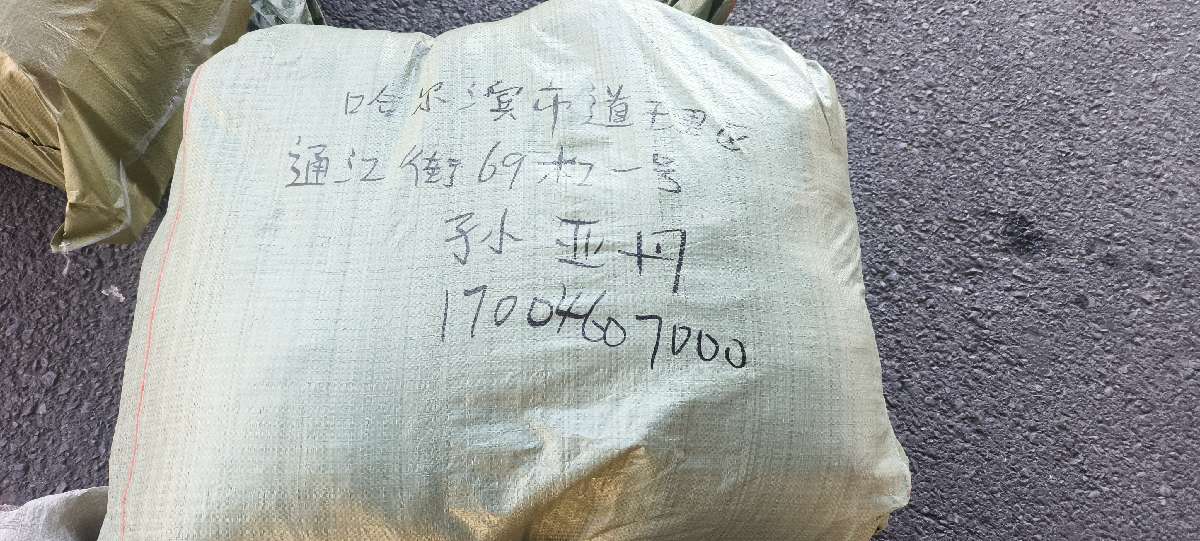 哈尔滨市道里区
通江街69栋一号
孙亚丹
17004607000